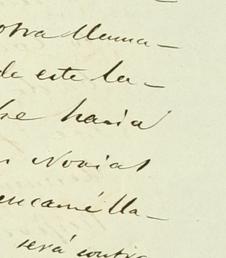 otra llama-
de este la-
haria
Novias
encamella-
será contra